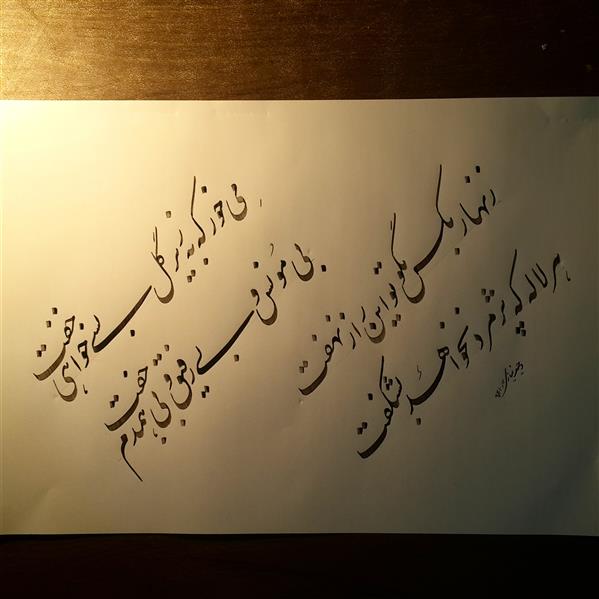 می خور که به زیر گل بسی خواهی خفت
بی مونس و بی رفیق و بی همدم و جفت
زنهار بکس مگو تو این راز نهفت
هر لاله که پژمرد نخواهد بشکفت